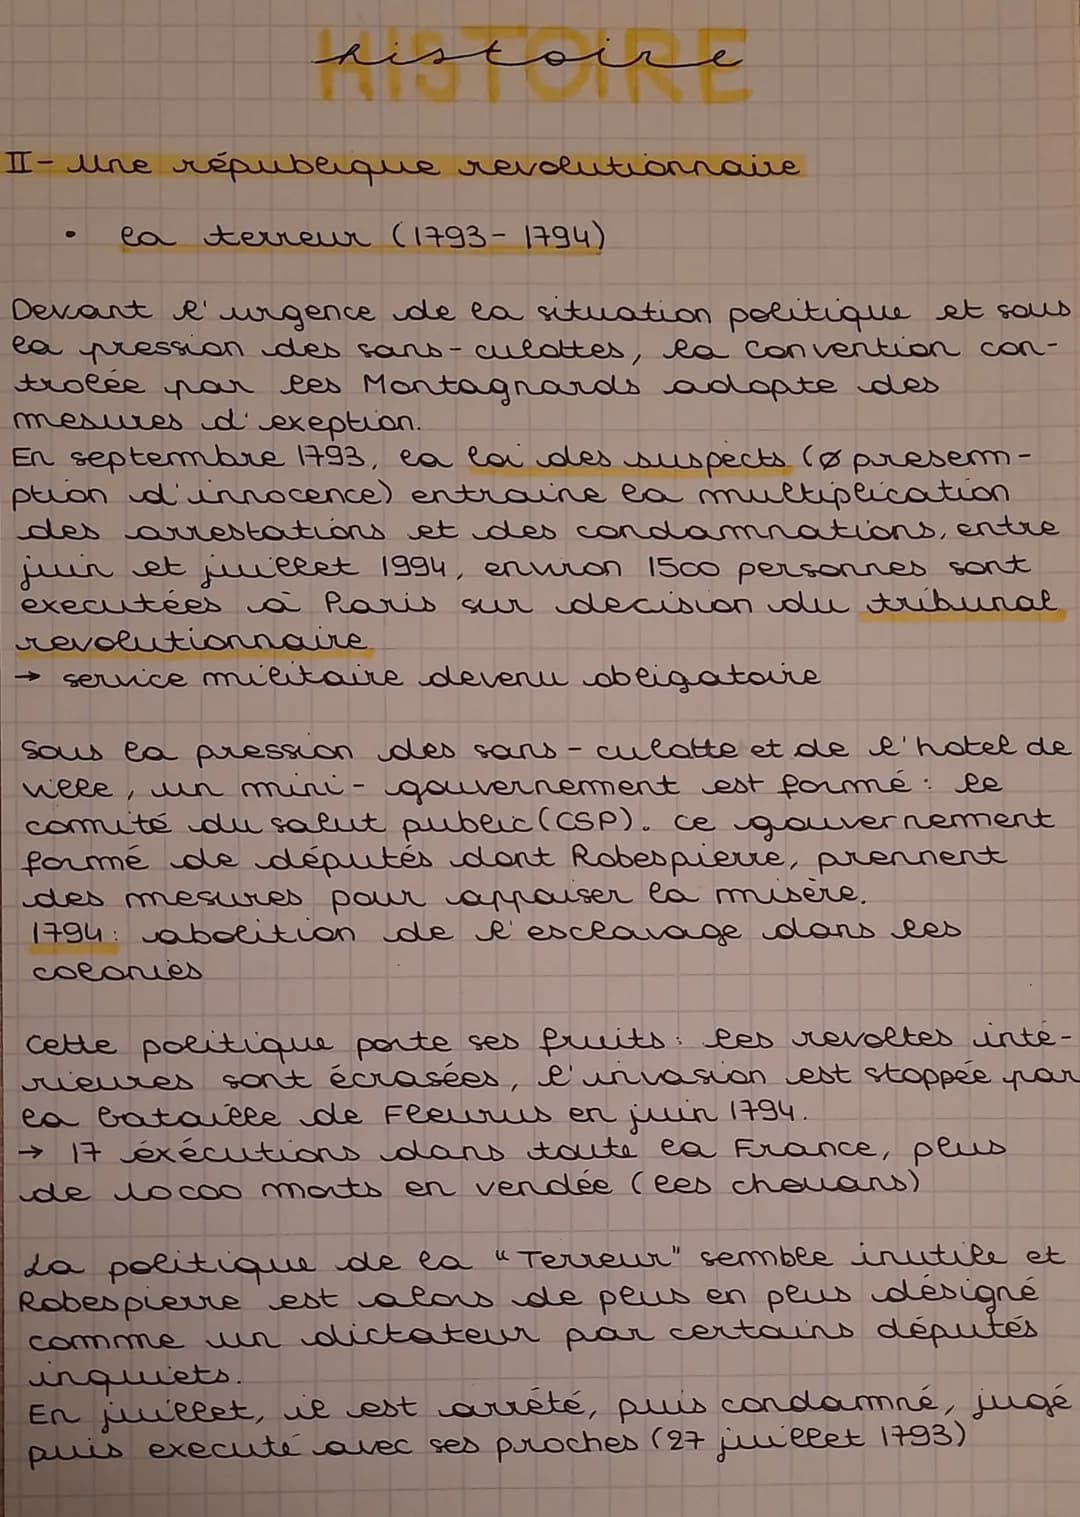 HISTOIRE
histoire
II- Une république revolutionnaire
• la terreur (1793- 1794)
Devant l'urgence de la situation politique et sous
la pression des sans-culottes, la Convention con-
trolée par les Montagnards adopte des
mesures d'exeption.
En septembre 1793, la loi des suspects (ø presem-
ption d'innocence) entraine la multiplication
des arrestations et des condamnations, entre
juin et juillet 1994, environ 1500 personnes sont
executées à Paris sur decision du tribunal
revolutionnaire
→ service militaire devenu obligatoire
Sous la pression des sans-culotte et de l'hotel de
ville, un mini-gouvernement est formé: le
comité du salut public (CSP). ce gouvernement
formé de députés dont Robespierre, prennent
des mesures pour appaiser la misère.
1794: abolition de l'esclavage dans les
colonies
Cette politique porte ses fruits: les revoltes inté-
rieures sont écrasées, l'invasion est stoppée par
la bataille de Fleurus en juin 1794.
→ 17 éxécutions dans toute la France, plus
de 10000 morts en vendée (les chouans)
La politique de la "Terreur" semble inutile et
Robespierre est alors de plus en plus désigné
comme un dictateur par certains députés
inquiets.
En juillet, il est arrété, puis condamné, jugé
puis executé avec ses proches (27 juillet 1793)